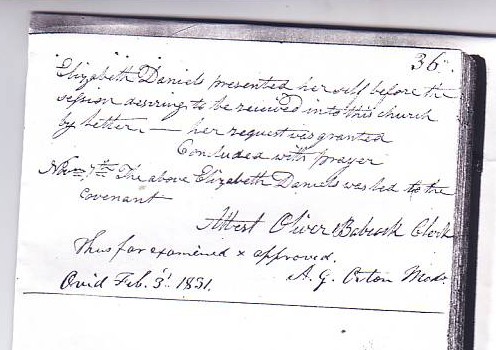 36
Elizabeth Daniels presented her self before the
session desiring to be received into this church
by letter, — her request was granted
Concluded with prayer
Nov 7th The above Elizabeth Daniels was led to the
Covenant
Attest Oliver Babcock Clerk
Thus far examined & approved.
Ovid Feb. 3d 1831. A. G. Orton Modr.